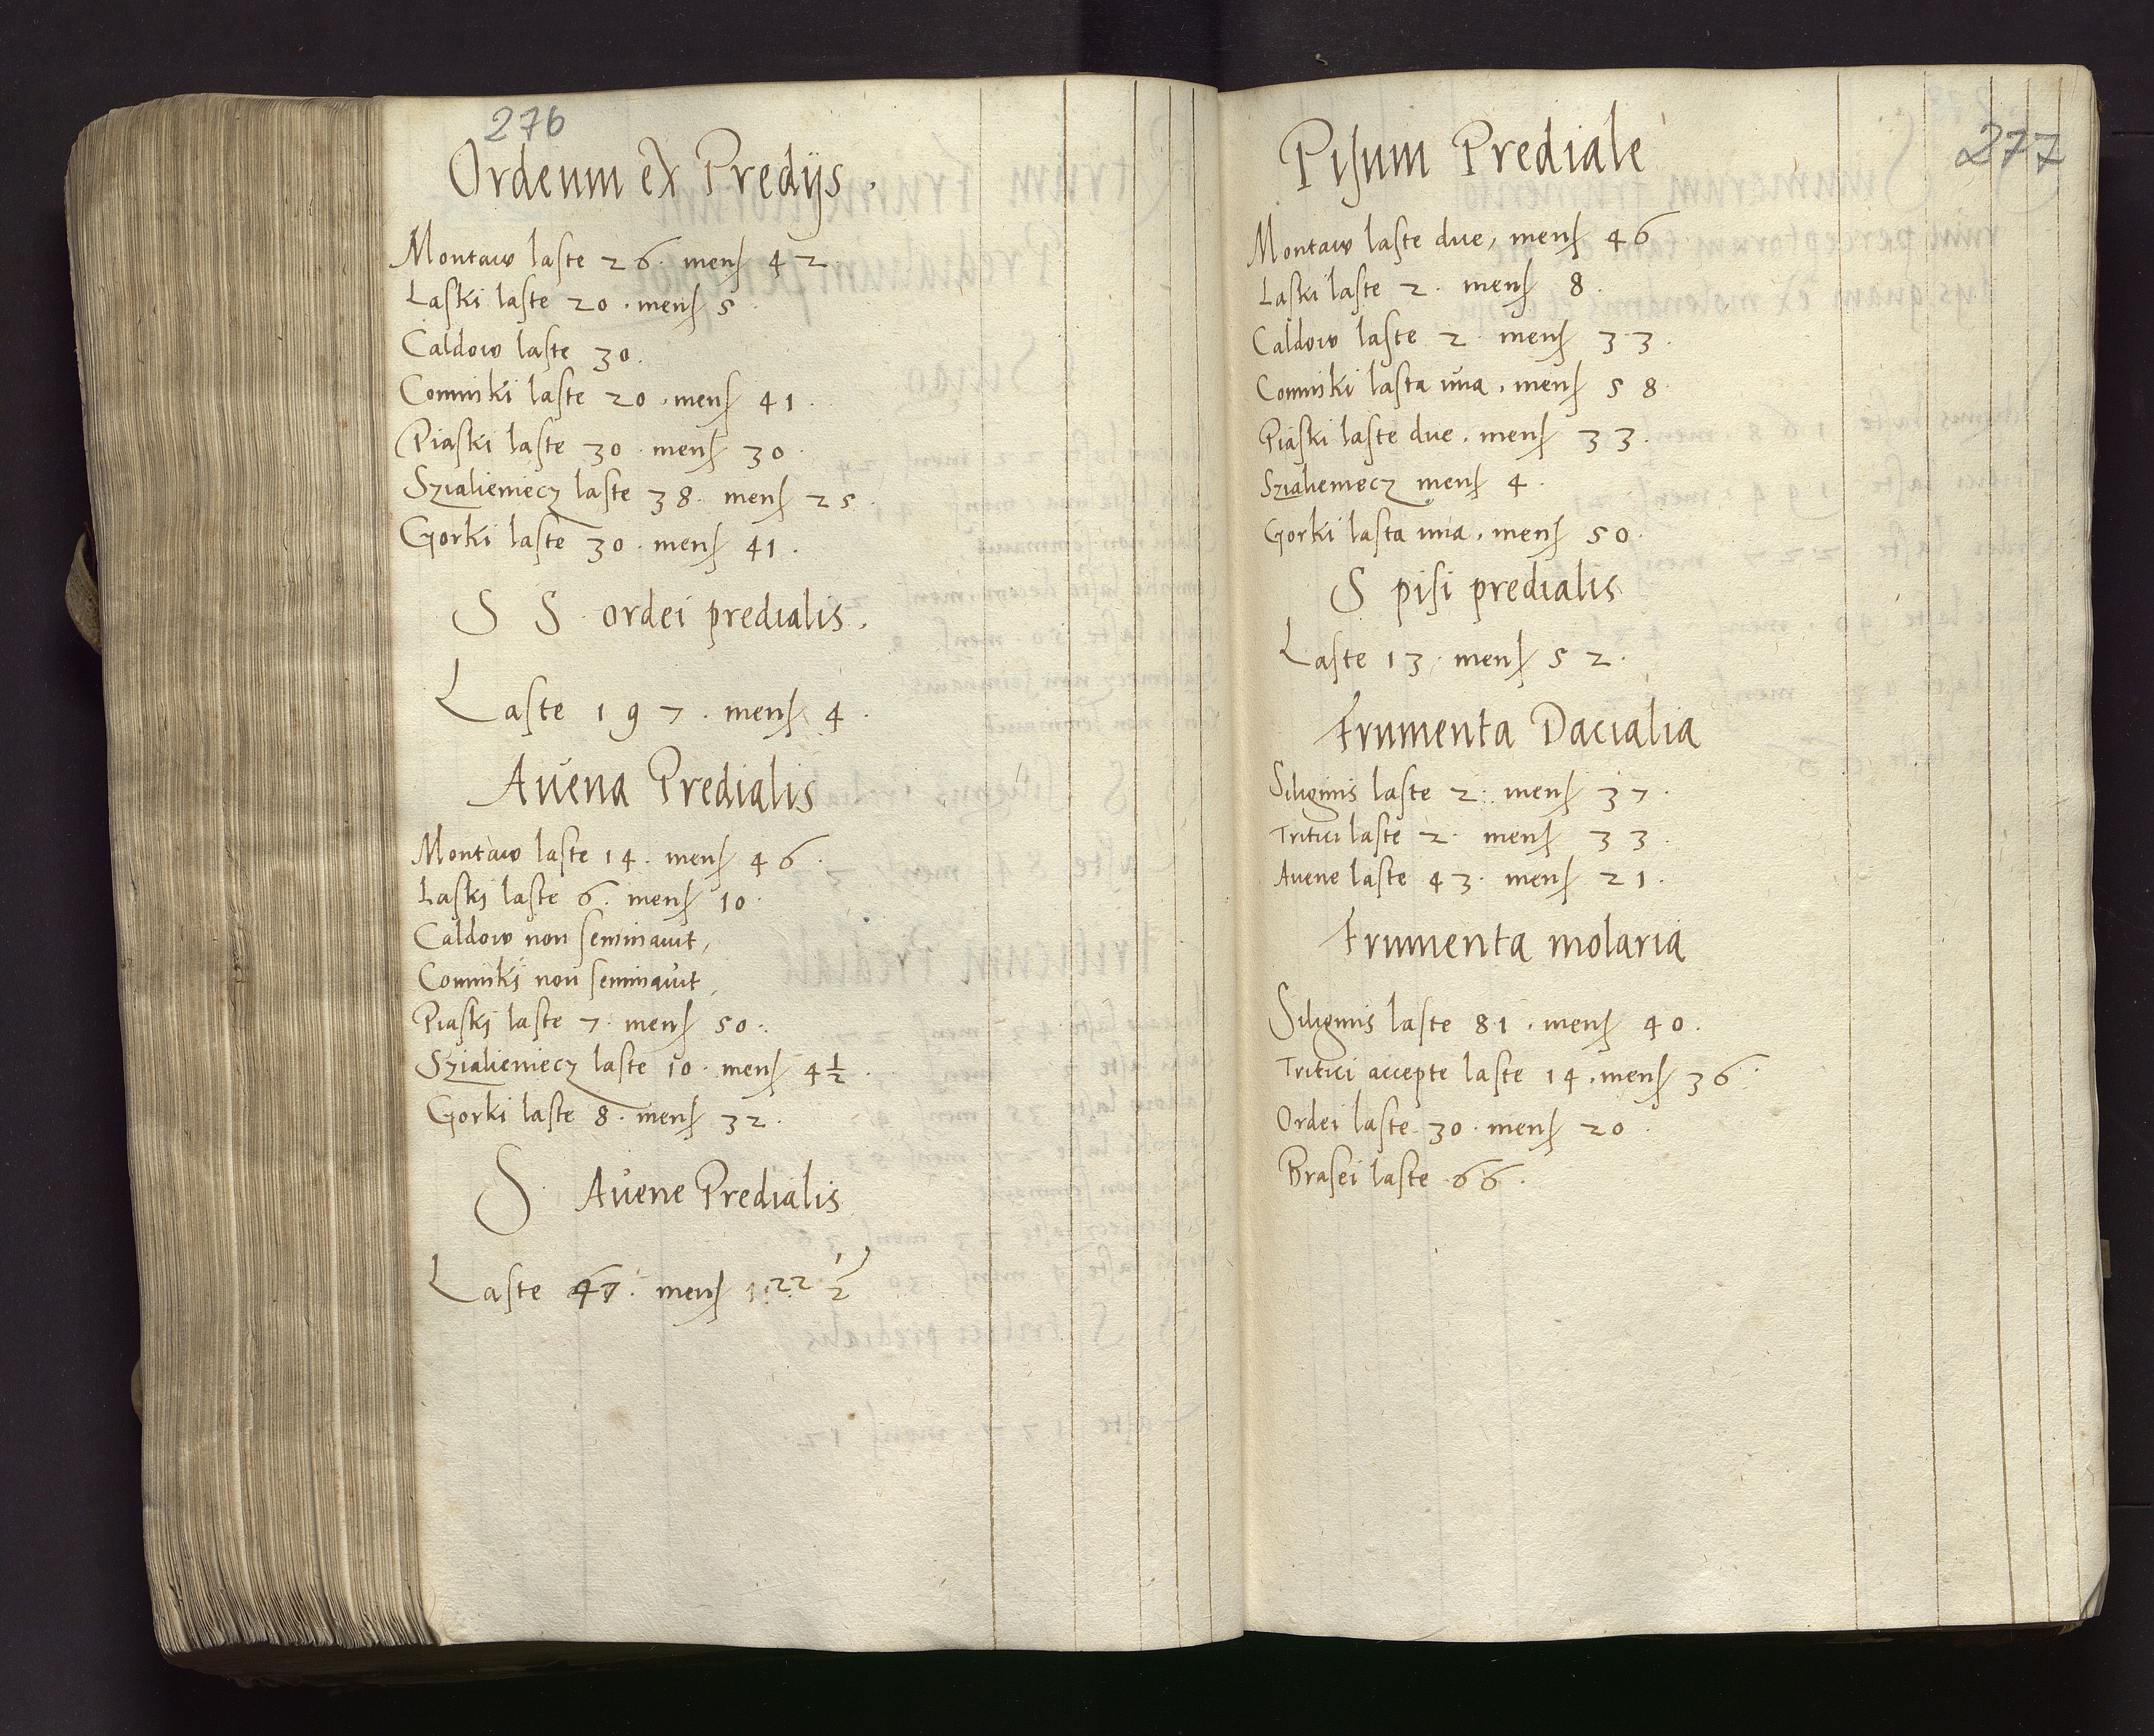 276
Ordeum ex Predijs.
Montaw laste 26. mens 42.
Laski laste 20. mens 5.
Caldow laste 30.
Comniki laste 20. mens 41.
Piaski laste 30. mens 30.
Szialieniecz laste 38. mens 25.
Gorki laste 30. mens 41.
S S ordei predialis.
Laste 197. mens 4.
Auena Predialis
Montaw laste 14. mens 46.
Laski laste 6. mens 10.
Caldow non seminauit.
Comniki non seminauit.
Piaski laste 7. mens 50.
Szialieniecz laste 10. mens 4½.
Gorki laste 8. mens 32.
S. Auene Predialis
Laste 47. mens 22 ½
277
Pisum Prediale
Montaw laste due, mens 46
Laski laste 2. mens 8.
Caldow laste 2. mens 33.
Comniki lasta una, mens 58.
Piaski laste due, mens 33.
Szialieniecz mens 4.
Gorki lasta una, mens 50.
S pisi predialis
Laste 13. mens 52.
Frumenta Dacialia
Siliginis laste 2. mens 37.
Tritici laste 2. mens 33.
Auene laste 43. mens 21.
Frumenta molaria
Siliginis laste 81. mens 40.
Tritici accepte laste 14. mens 36.
Ordei laste 30. mens 20.
Brasei laste 66.